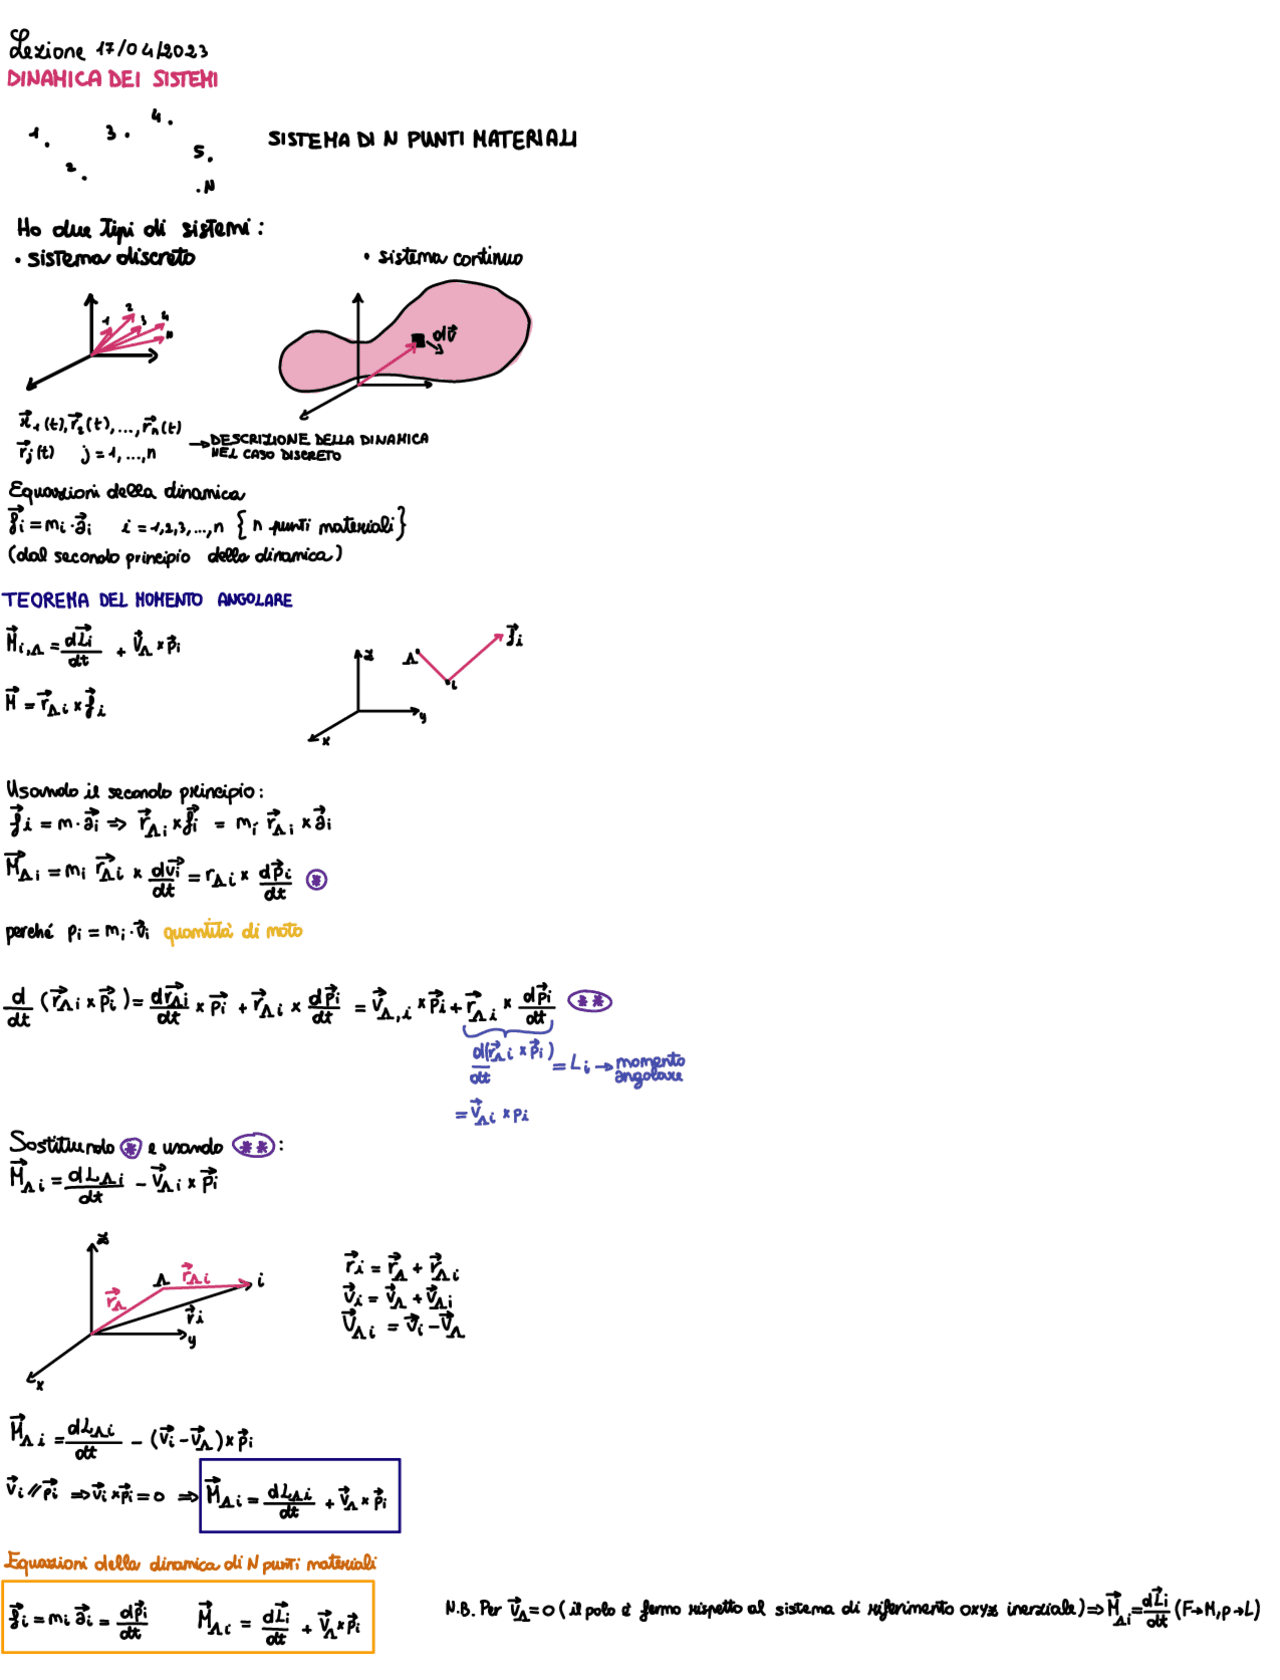 Lezione 17/04/2023
DINAMICA DEI SISTEMI
1 2 3 4 5 N
SISTEMA DI N PUNTI MATERIALI
Ho due tipi di sistemi:
• sistema discreto
• sistema continuo
1 2 3 4 N
dv⃗
r⃗₁(t), r⃗₂(t), ..., r⃗ₙ(t)
r⃗ⱼ(t) j = 1, ..., n
→ DESCRIZIONE DELLA DINAMICA
NEL CASO DISCRETO
Equazioni della dinamica
f⃗i = mi · a⃗i i = 1,2,3, ..., n { n punti materiali }
(dal secondo principio della dinamica)
TEOREMA DEL MOMENTO ANGOLARE
M⃗i,Λ = dL⃗i/dt + v⃗Λ × p⃗i
M⃗ = r⃗Λi × f⃗i
z y x Λ i f⃗i
Usando il secondo principio:
f⃗i = m · a⃗i ⇒ r⃗Λi × f⃗i = mi r⃗Λi × a⃗i
M⃗Λi = mi r⃗Λi × dv⃗i/dt = rΛi × dp⃗i/dt (*)
perché pi = mi · v⃗i quantità di moto
d/dt (r⃗Λi × p⃗i) = dr⃗Λi/dt × p⃗i + r⃗Λi × dp⃗i/dt = v⃗Λ,i × p⃗i + r⃗Λi × dp⃗i/dt (**)
d(r⃗Λi × p⃗i)/dt = Li → momento angolare
= v⃗Λi × pi
Sostituendo (*) e usando (**):
M⃗Λi = dLΛi/dt - v⃗Λi × p⃗i
z y x Λ i r⃗Λ r⃗Λi r⃗i
r⃗i = r⃗Λ + r⃗Λi
v⃗i = v⃗Λ + v⃗Λi
v⃗Λi = v⃗i - v⃗Λ
M⃗Λi = dLΛi/dt - (v⃗i - v⃗Λ) × p⃗i
v⃗i // p⃗i ⇒ v⃗i × p⃗i = 0 ⇒ M⃗Λi = dLΛi/dt + v⃗Λ × p⃗i
Equazioni della dinamica di N punti materiali
f⃗i = mi a⃗i = dp⃗i/dt M⃗Λi = dL⃗i/dt + v⃗Λ × p⃗i
N.B. Per v⃗Λ = 0 (il polo è fermo rispetto al sistema di riferimento oxyz inerziale) ⇒ M⃗Λi = dL⃗i/dt (F→M, p→L)